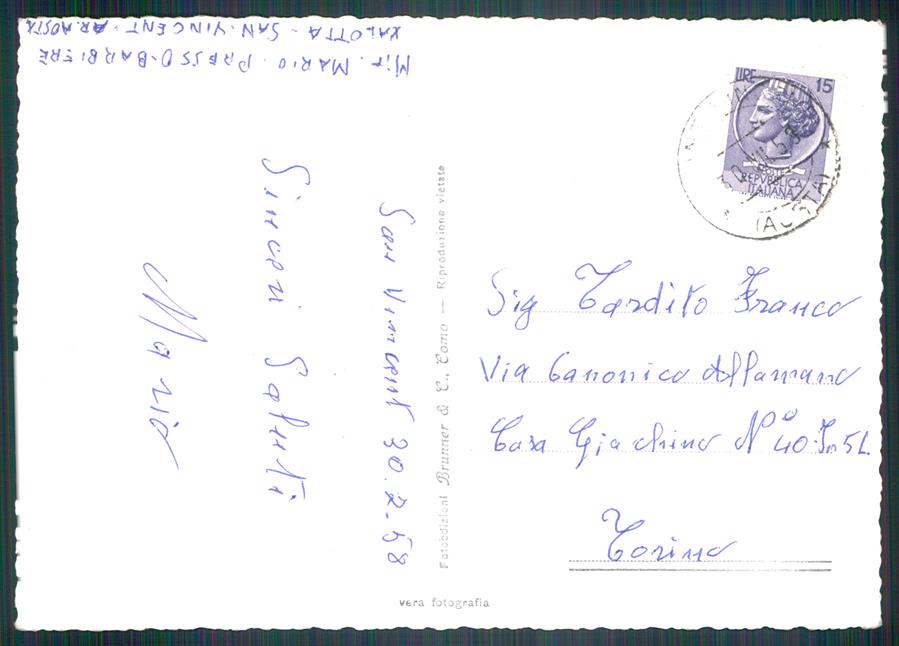 Mit. MARIO PRESSO BARBIERE
XALOTTA - SAN. VINCENT - AR. AOSTA
San Vincent 30.2.58
Sinceri Saluti
Mario
Fotoedizioni Brunner & C., Como — Riproduzione vietata
vera fotografia
LIRE 15
POSTE
REPVBBLICA
ITALIANA
(AOSTA)
Sig Tardito Franco
Via Canonico Allamano
Casa Giachino Nº 40. In 5L
Torino